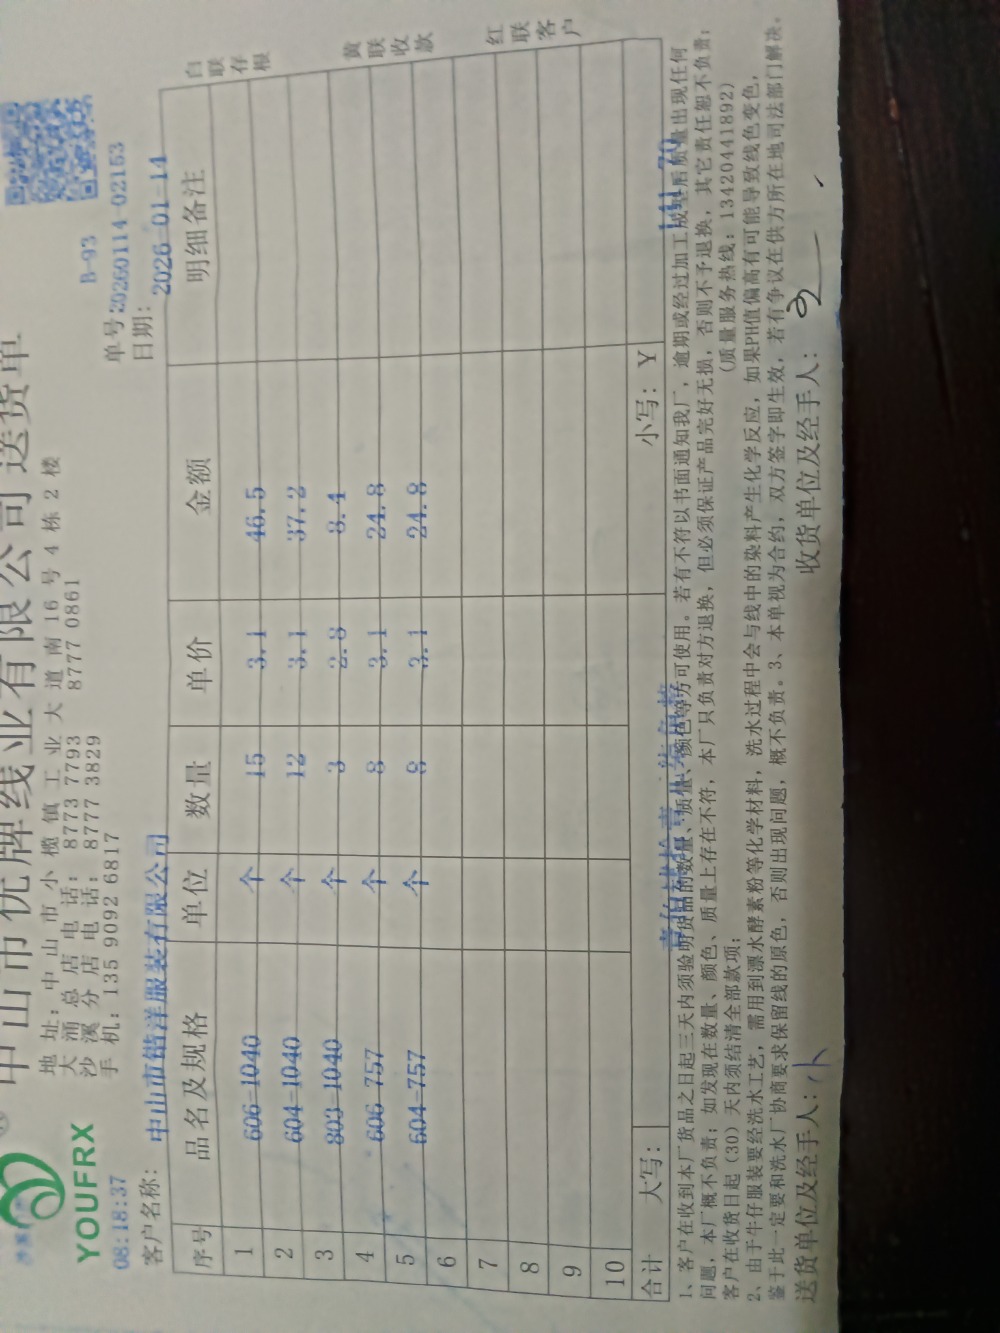 YOUFRX
中山市优牌线业有限公司送货单
地 址: 中山市小榄镇工业大道南16号4栋2楼
大涌总店电话: 8773 7793 8777 0861
沙溪分店电话: 8777 3829
手 机: 135 9092 6817
B-93
08:18:37
单号:20260114-02153
客户名称: 中山市锴洋服装有限公司
日期: 2026-01-14
序号 品名及规格 单位 数量 单价 金额 明细备注
1 606-1040 个 15 3.1 46.5
2 604-1040 个 12 3.1 37.2
3 803-1040 个 3 2.8 8.4
4 606-757 个 8 3.1 24.8
5 604-757 个 8 3.1 24.8
6
7
8
9
10
合计 大写: 小写: Y 141.70
白联存根
黄联收款
红联客户
1、客户在收到本厂货品之日起三天内须验明货品的数量、质量、颜色等方可使用。若有不符以书面通知我厂，逾期或经过加工成型后质量出现任何
问题，本厂概不负责；如发现在数量、颜色、质量上存在不符，本厂只负责对方退换，但必须保证产品完好无损，否则不予退换，其它责任恕不负责；
客户在收货日起（30）天内须结清全部款项； （质量服务热线：13420441892）
2、由于牛仔服装要经洗水工艺，需用到漂水酵素粉等化学材料，洗水过程中会与线中的染料产生化学反应，如果PH值偏高有可能导致线色变色，
鉴于此一定要和洗水厂协商要求保留线的原色，否则出现问题，概不负责。3、本单视为合约，双方签字即生效，若有争议在供方所在地司法部门解决。
送货单位及经手人: 收货单位及经手人: